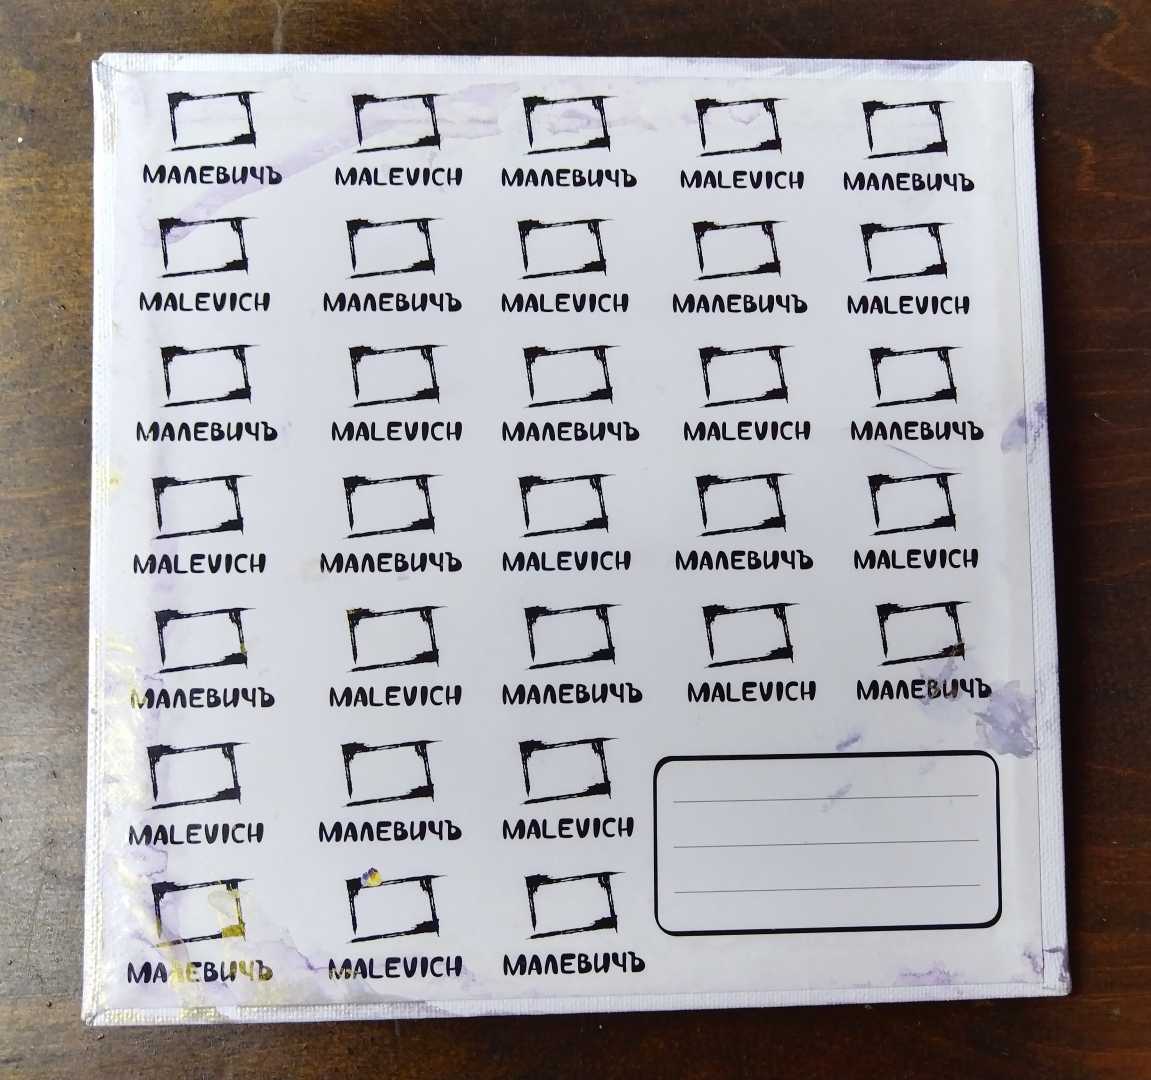 МАЛЕВИЧЪ MALEVICH МАЛЕВИЧЪ MALEVICH МАЛЕВИЧЪ
MALEVICH МАЛЕВИЧЪ MALEVICH МАЛЕВИЧЪ MALEVICH
МАЛЕВИЧЪ MALEVICH МАЛЕВИЧЪ MALEVICH МАЛЕВИЧЪ
MALEVICH МАЛЕВИЧЪ MALEVICH МАЛЕВИЧЪ MALEVICH
МАЛЕВИЧЪ MALEVICH МАЛЕВИЧЪ MALEVICH МАЛЕВИЧЪ
MALEVICH МАЛЕВИЧЪ MALEVICH
МАЛЕВИЧЪ MALEVICH МАЛЕВИЧЪ